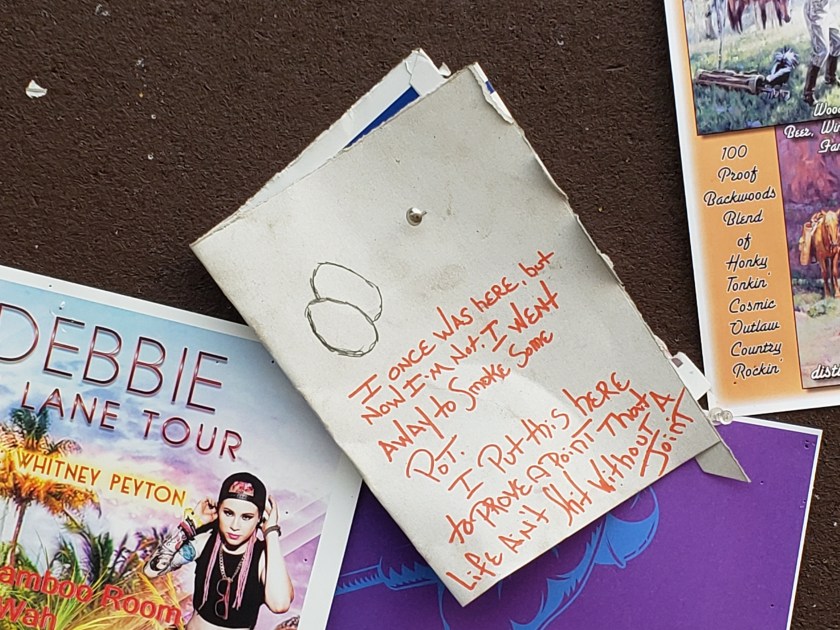 I once was here, but
Now I'm Not. I went
away to smoke some
Pot.
I Put this here
to prove a point that
Life Ain't Shit Without A
Joint
DEBBIE
LANE TOUR
WHITNEY PEYTON
amboo Room
Wah
Beer,
100
Proof
Backwoods
Blend
of
Honky
Tonkin'
Cosmic
Outlaw
Country
Rockin'